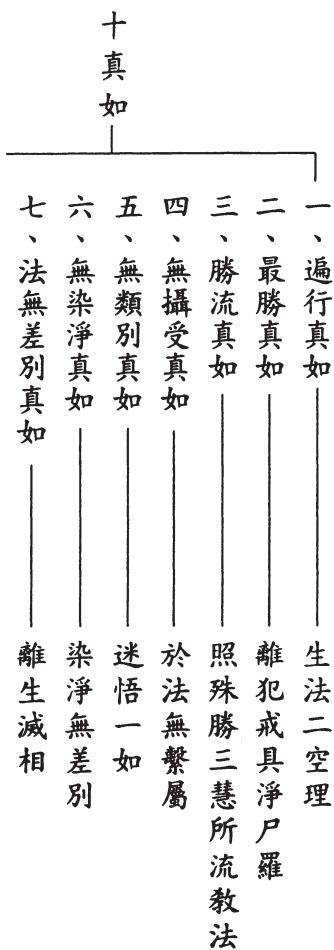 十真如
一、遍行真如
生法二空理
二、最勝真如
離犯戒具淨尸羅
三、勝流真如
照殊勝三慧所流教法
四、無攝受真如
於法無繫屬
五、無類別真如
迷悟一如
六、無染淨真如
染淨無差別
七、法無差別真如
離生滅相